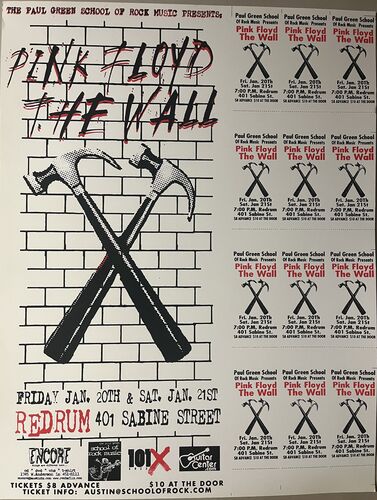 THE PAUL GREEN SCHOOL OF ROCK MUSIC PRESENTS:
PINK FLOYD
THE WALL
FRIDAY JAN. 20TH & SAT. JAN. 21ST
REDRUM 401 SABINE STREET
ENCORE
school of
rock music
101X
Guitar
Center
$10 AT THE DOOR
TICKETS $8 ADVANCE
TICKET INFO: AUSTIN@SCHOOLOFROCK.COM
Paul Green School
Of Rock Music Presents
Pink Floyd
The Wall
Fri. Jan. 20Th
Sat. Jan 21St
7:00 P.M. Redrum
401 Sabine St.
$8 ADVANCE $10 AT THE DOOR
Paul Green School
Of Rock Music Presents
Pink Floyd
The Wall
Fri. Jan. 20Th
Sat. Jan 21St
7:00 P.M. Redrum
401 Sabine St.
$8 ADVANCE $10 AT THE DOOR
Paul Green School
Of Rock Music Presents
Pink Floyd
The Wall
Fri. Jan. 20Th
Sat. Jan 21St
7:00 P.M. Redrum
401 Sabine St.
$8 ADVANCE $10 AT THE DOOR
Paul Green School
Of Rock Music Presents
Pink Floyd
The Wall
Fri. Jan. 20Th
Sat. Jan 21St
7:00 P.M. Redrum
401 Sabine St.
$8 ADVANCE $10 AT THE DOOR
Paul Green School
Of Rock Music Presents
Pink Floyd
The Wall
Fri. Jan. 20Th
Sat. Jan 21St
7:00 P.M. Redrum
401 Sabine St.
$8 ADVANCE $10 AT THE DOOR
Paul Green School
Of Rock Music Presents
Pink Floyd
The Wall
Fri. Jan. 20Th
Sat. Jan 21St
7:00 P.M. Redrum
401 Sabine St.
$8 ADVANCE $10 AT THE DOOR
Paul Green School
Of Rock Music Presents
Pink Floyd
The Wall
Fri. Jan. 20Th
Sat. Jan 21St
7:00 P.M. Redrum
401 Sabine St.
$8 ADVANCE $10 AT THE DOOR
Paul Green School
Of Rock Music Presents
Pink Floyd
The Wall
Fri. Jan. 20Th
Sat. Jan 21St
7:00 P.M. Redrum
401 Sabine St.
$8 ADVANCE $10 AT THE DOOR
Paul Green School
Of Rock Music Presents
Pink Floyd
The Wall
Fri. Jan. 20Th
Sat. Jan 21St
7:00 P.M. Redrum
401 Sabine St.
$8 ADVANCE $10 AT THE DOOR
Paul Green School
Of Rock Music Presents
Pink Floyd
The Wall
Fri. Jan. 20Th
Sat. Jan 21St
7:00 P.M. Redrum
401 Sabine St.
$8 ADVANCE $10 AT THE DOOR
Paul Green School
Of Rock Music Presents
Pink Floyd
The Wall
Fri. Jan. 20Th
Sat. Jan 21St
7:00 P.M. Redrum
401 Sabine St.
$8 ADVANCE $10 AT THE DOOR
Paul Green School
Of Rock Music Presents
Pink Floyd
The Wall
Fri. Jan. 20Th
Sat. Jan 21St
7:00 P.M. Redrum
401 Sabine St.
$8 ADVANCE $10 AT THE DOOR